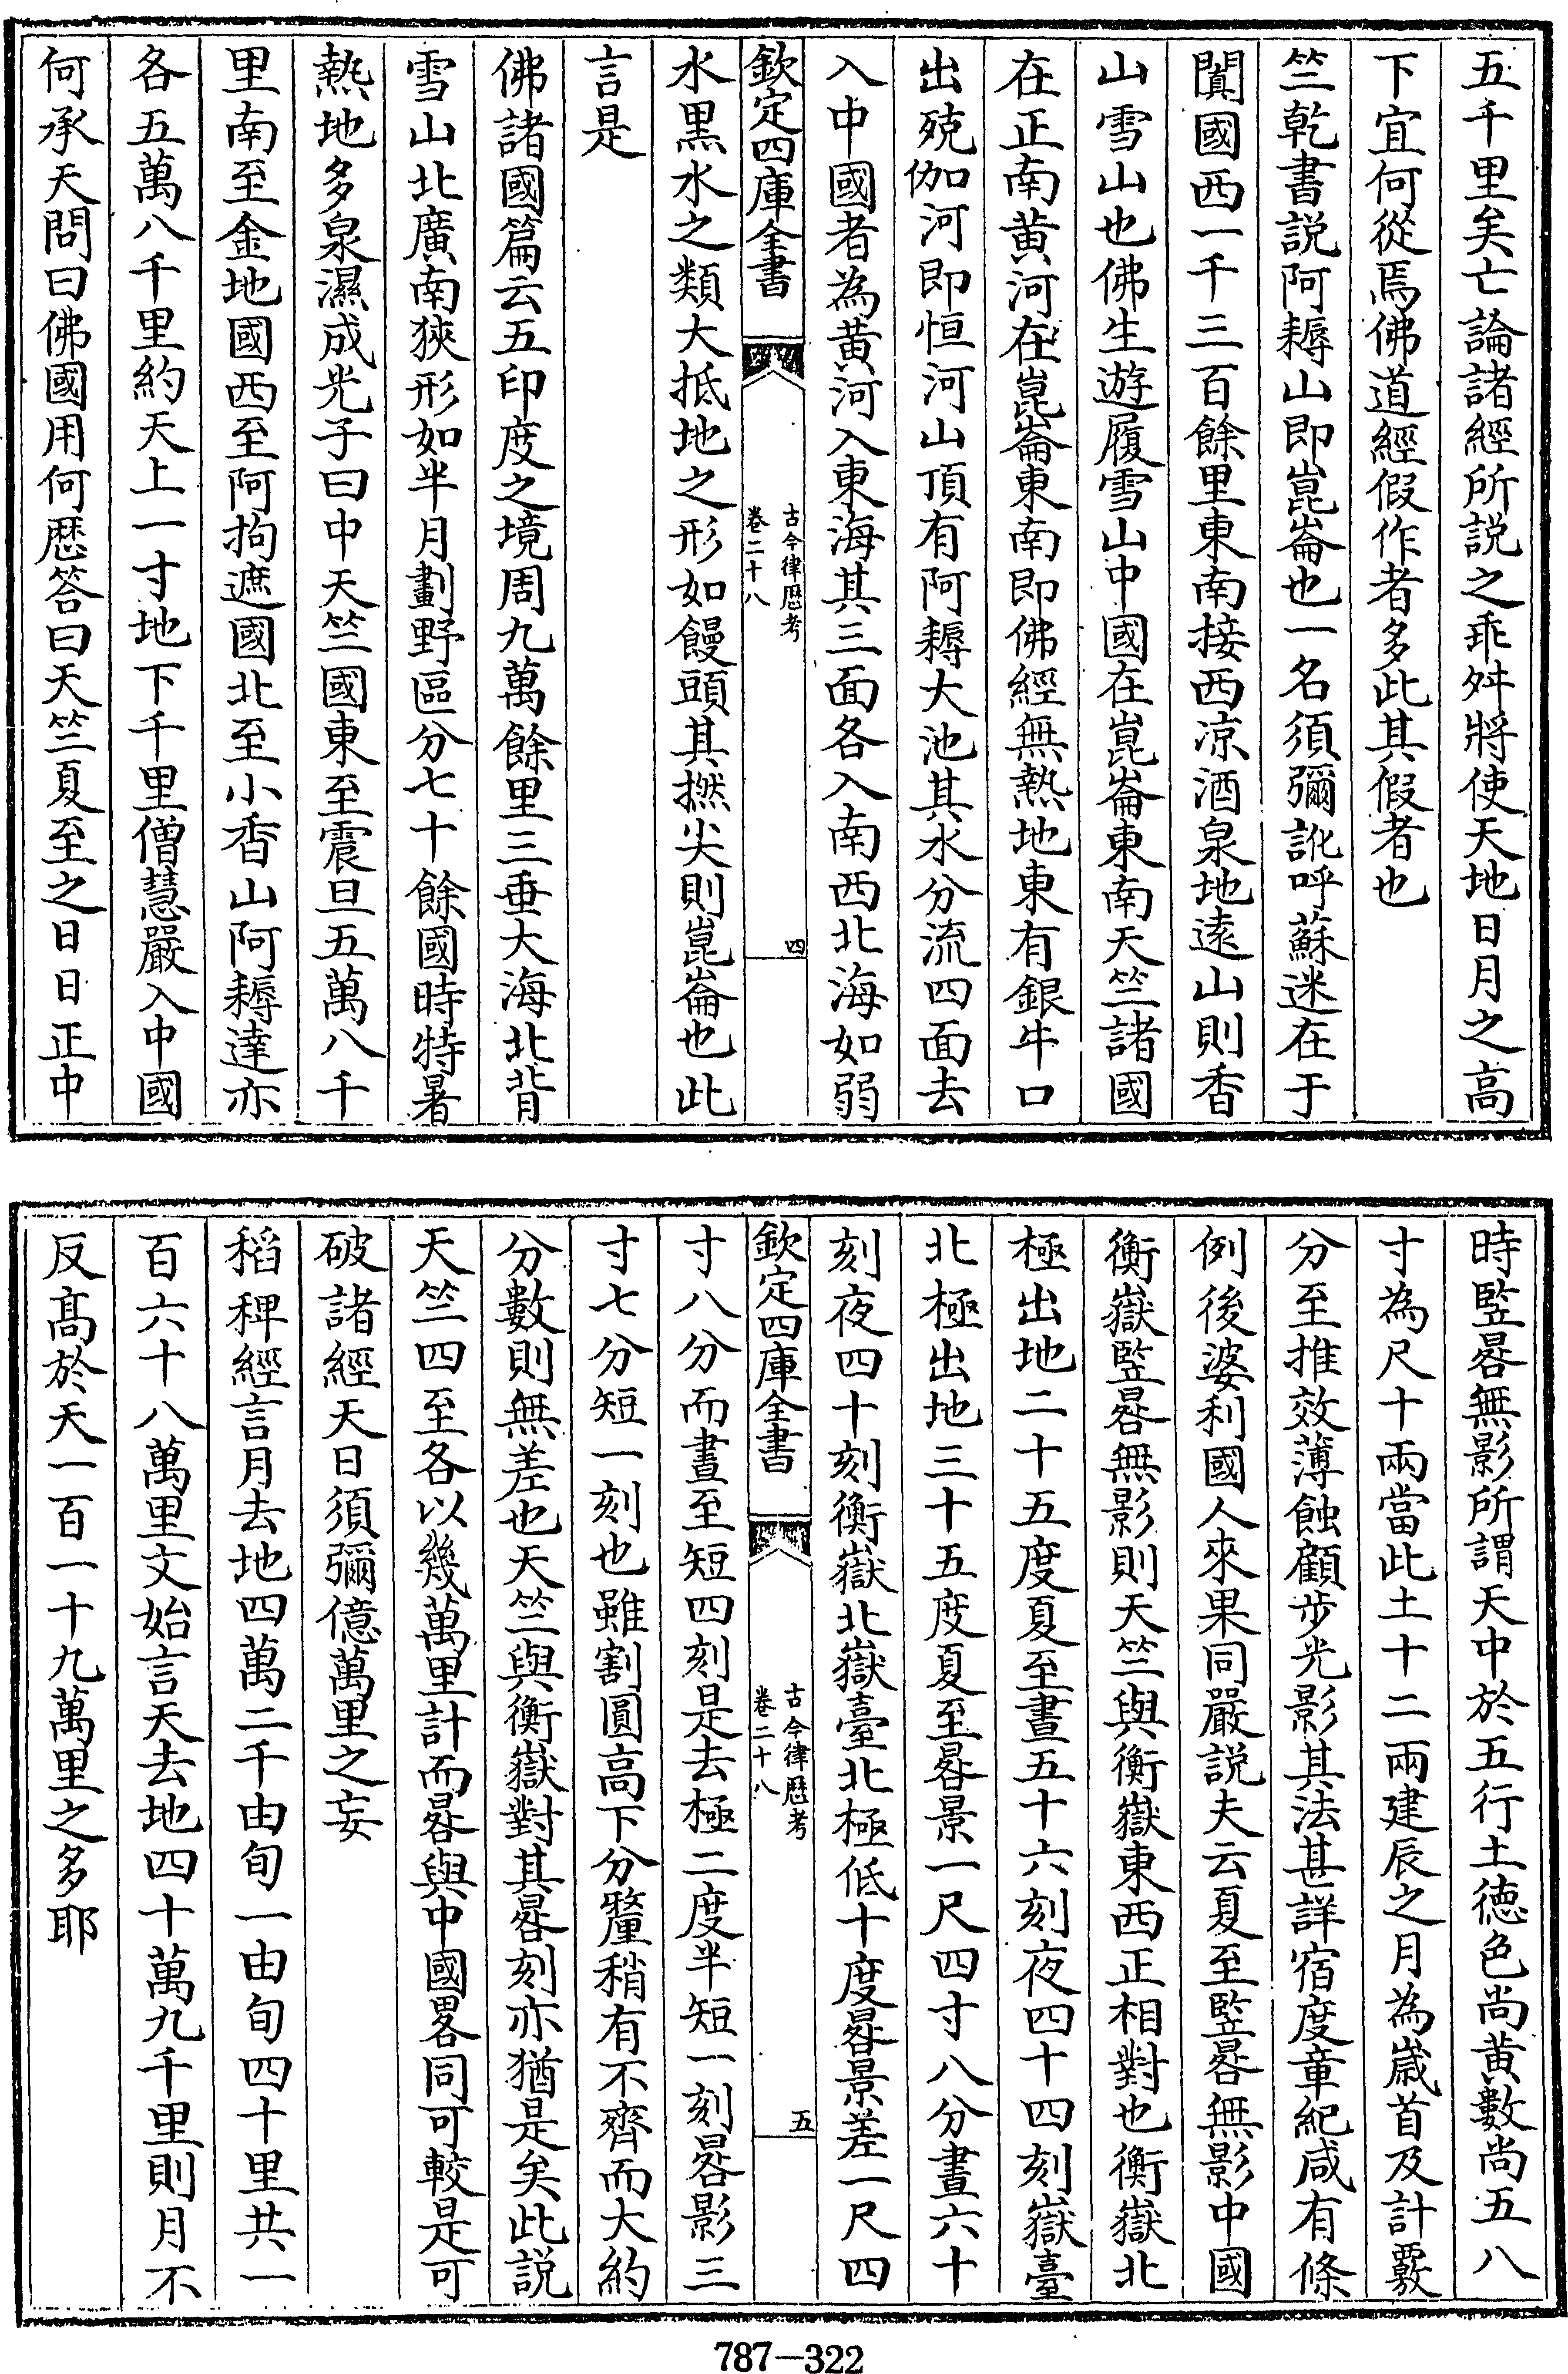 五千里矣亡論諸經所説之乖舛將使天地日月之高
下宜何從焉佛道經假作者多此其假者也
竺乾書説阿耨山即崑崙也一名須彌訛呼蘇迷在于
闐國西一千三百餘里東南接西涼酒泉地遠山則香
山雪山也佛生遊履雪山中國在崑崙東南天竺諸國
在正南黄河在崑崙東南即佛經無熱地東有銀牛口
出殑伽河即恒河山頂有阿耨大池其水分流四面去
入中國者為黄河入東海其三面各入南西北海如弱
欽定四庫全書
古今律厯考
卷二十八
四
水黒水之類大抵地之形如饅頭其撚尖則崑崙也此
言是
佛諸國篇云五印度之境周九萬餘里三垂大海北背
雪山北廣南狹形如半月劃野區分七十餘國時特暑
熱地多泉濕成光子曰中天竺國東至震旦五萬八千
里南至金地國西至阿拘遮國北至小香山阿耨達亦
各五萬八千里約天上一寸地下千里僧慧嚴入中國
何承天問曰佛國用何厯答曰天竺夏至之日日正中
時竪晷無影所謂天中於五行土徳色尚黄數尚五八
寸為尺十兩當此土十二兩建辰之月為嵗首及計覈
分至推效薄蝕顧步光影其法甚詳宿度章紀咸有條
例後婆利國人來果同嚴説夫云夏至竪晷無影中國
衡嶽竪晷無影則天竺與衡嶽東西正相對也衡嶽北
極出地二十五度夏至晝五十六刻夜四十四刻嶽臺
北極出地三十五度夏至晷景一尺四寸八分晝六十
刻夜四十刻衡嶽北嶽臺北極低十度晷景差一尺四
欽定四庫全書
古今律厯考
卷二十八
五
寸八分而晝至短四刻是去極二度半短一刻晷影三
寸七分短一刻也雖割圓高下分釐稍有不齊而大約
分數則無差也天竺與衡嶽對其晷刻亦猶是矣此説
天竺四至各以幾萬里計而晷與中國畧同可較是可
破諸經天日須彌億萬里之妄
稻稗經言月去地四萬二千由旬一由旬四十里共一
百六十八萬里文始言天去地四十萬九千里則月不
反髙於天一百一十九萬里之多耶
787—322